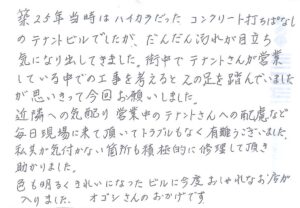 築25年当時はハイカラだった コンクリート打ちぱなし
のテナントビルでしたが、だんだん汚れが目立ち
気になり出してきました。街中でテナントさんが営業
している中での工事を考えると 二の足を踏んでいました
が思いきって今回お願いしました。
近隣への気配り 営業中のテナントさんへの配慮など
毎日現場に来て頂いてトラブルもなく有難うございました。
私共が気付かない箇所も積極的に修理して頂き
助かりました。
色も明るくきれいになったビルに今度おしゃれなお店が
入りました。 オゴシさんのおかげです